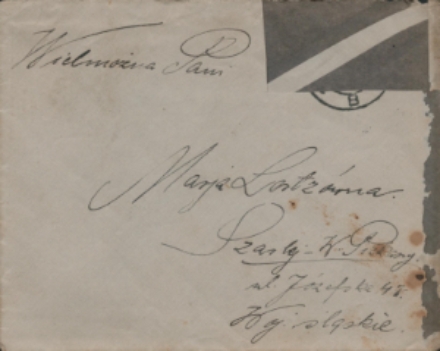 Wielmożna Pani
Marja Lortzówna.
Szarlej-W-Piekary.
ul. Józefska 45.
Woj. śląskie.
B